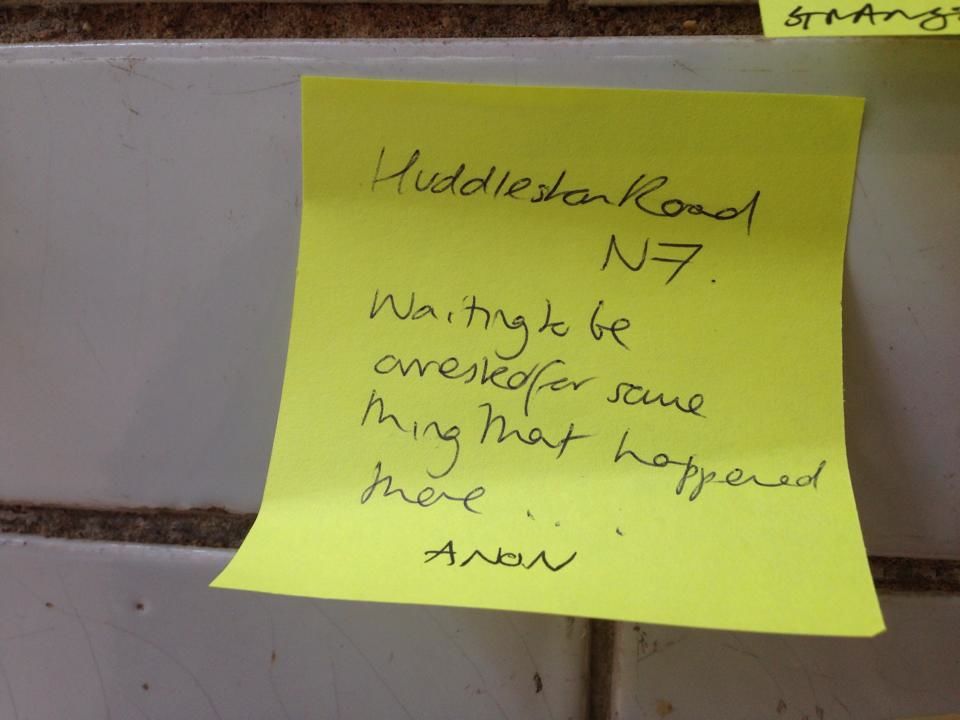 STRANGE
Huddleston Road
N7.
Waiting to be
arrested for some
thing that happened
there ....
ANON